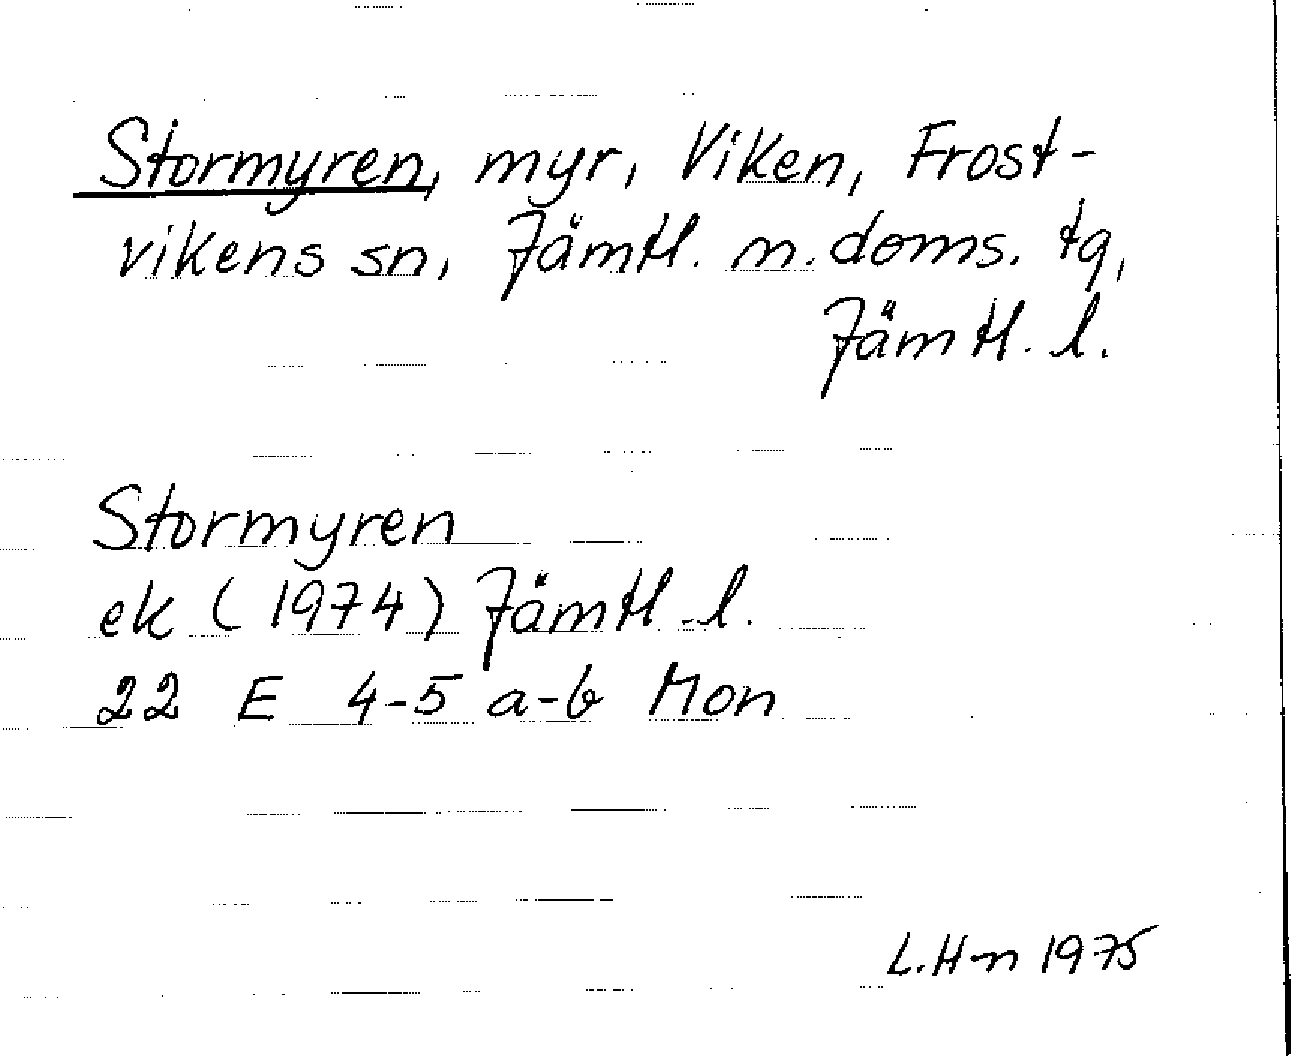 Stormyren, myr, Viken, Frost-
vikens sn, Jämtl. n. doms. tg,
Jämtl. l.
Stormyren
ek (1974) Jämtl. l.
22 E 4-5 a-b Mon
L.H-n 1975